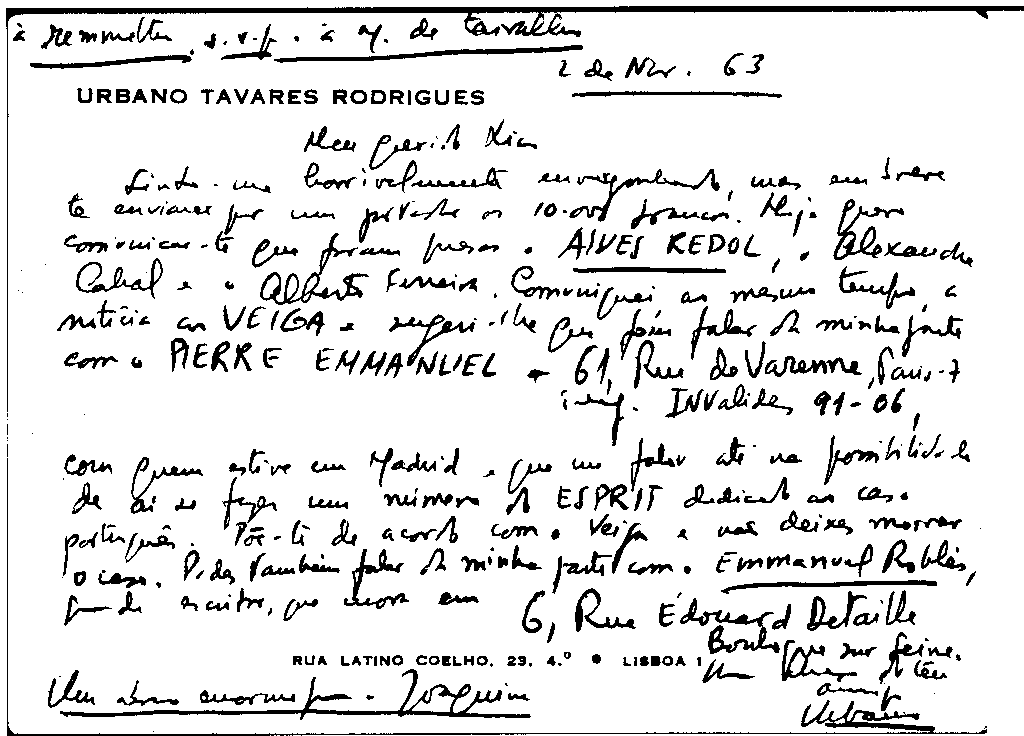 à remmettre, s.v.p. à M. de Carvalho
2 de Nov. 63
URBANO TAVARES RODRIGUES
Meu querido
Sinto-me horrivelmente envergonhado, mas em breve
te enviarei por um portador os 10.000 francos. Hoje quero
comunicar-te que foram presos o ALVES REDOL, o Alexandre
Cabral e o Alberto Ferreira. Comuniquei ao mesmo tempo a
notícia ao VEIGA e sugeri-lhe que fosse falar da minha parte
com o PIERRE EMMANUEL - 61, Rue de Varenne, Paris-7
INValides 91-06,
com quem estive em Madrid e que me falou até na possibilidade
de aí se fazer um número do ESPRIT dedicado ao caso
português. Põe-te de acordo com o Veiga e não deixes morrer
o caso. Podes também falar da minha parte com o Emmanuel Roblès,
grande escritor, que mora em 6, Rue Édouard Detaille
Boulogne sur Seine.
RUA LATINO COELHO, 23, 4.º • LISBOA 1
Um abraço do teu
amigo
Urbano
Um abraço enorme para o Joaquim